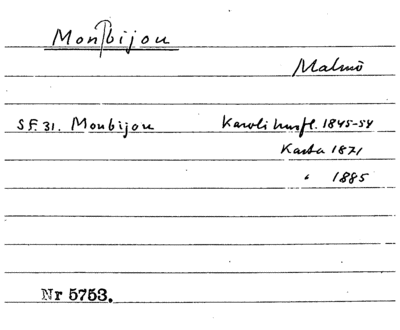 Monbijou
Malmö
SF. 31. Monbijou Karoli husfl. 1845-54
Karta 1871
" 1885
Nr 5753.